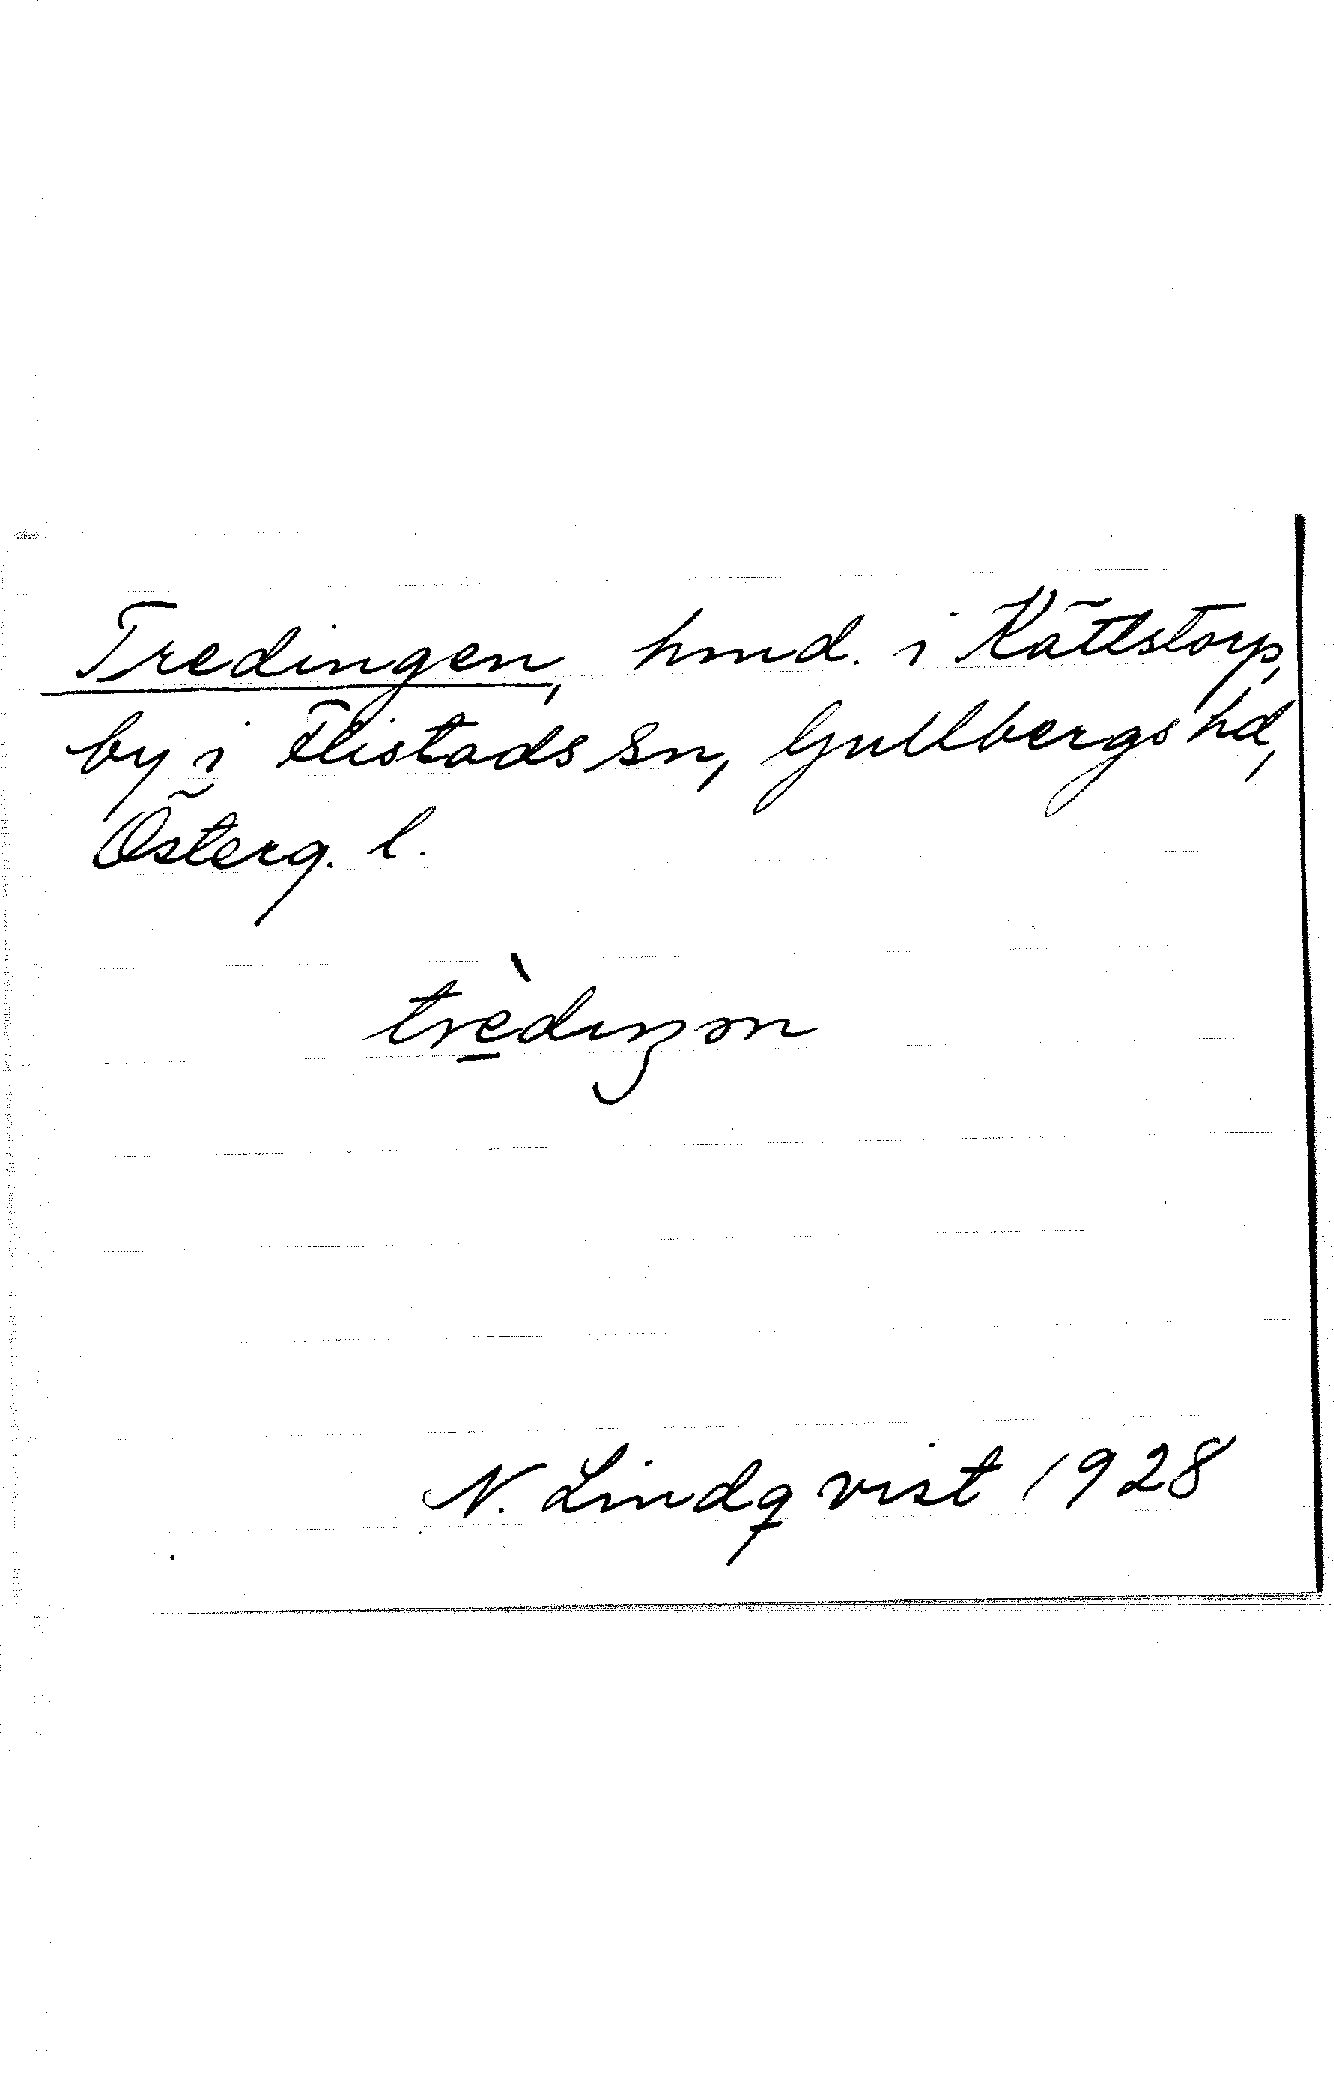 Tredingen, hmd. i Kättstorp,
by i Flistads sn, Gullbergs hd,
Österg. l.
trèdiŋən
N. Lindqvist 1928